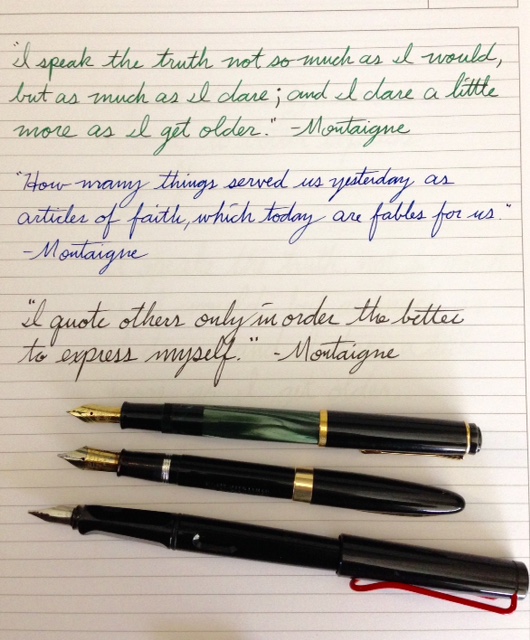 "I speak the truth not so much as I would,
but as much as I dare; and I dare a little
more as I get older." -Montaigne
"How many things served us yesterday as
articles of faith, which today are fables for us."
-Montaigne
"I quote others only in order the better
to express myself." -Montaigne